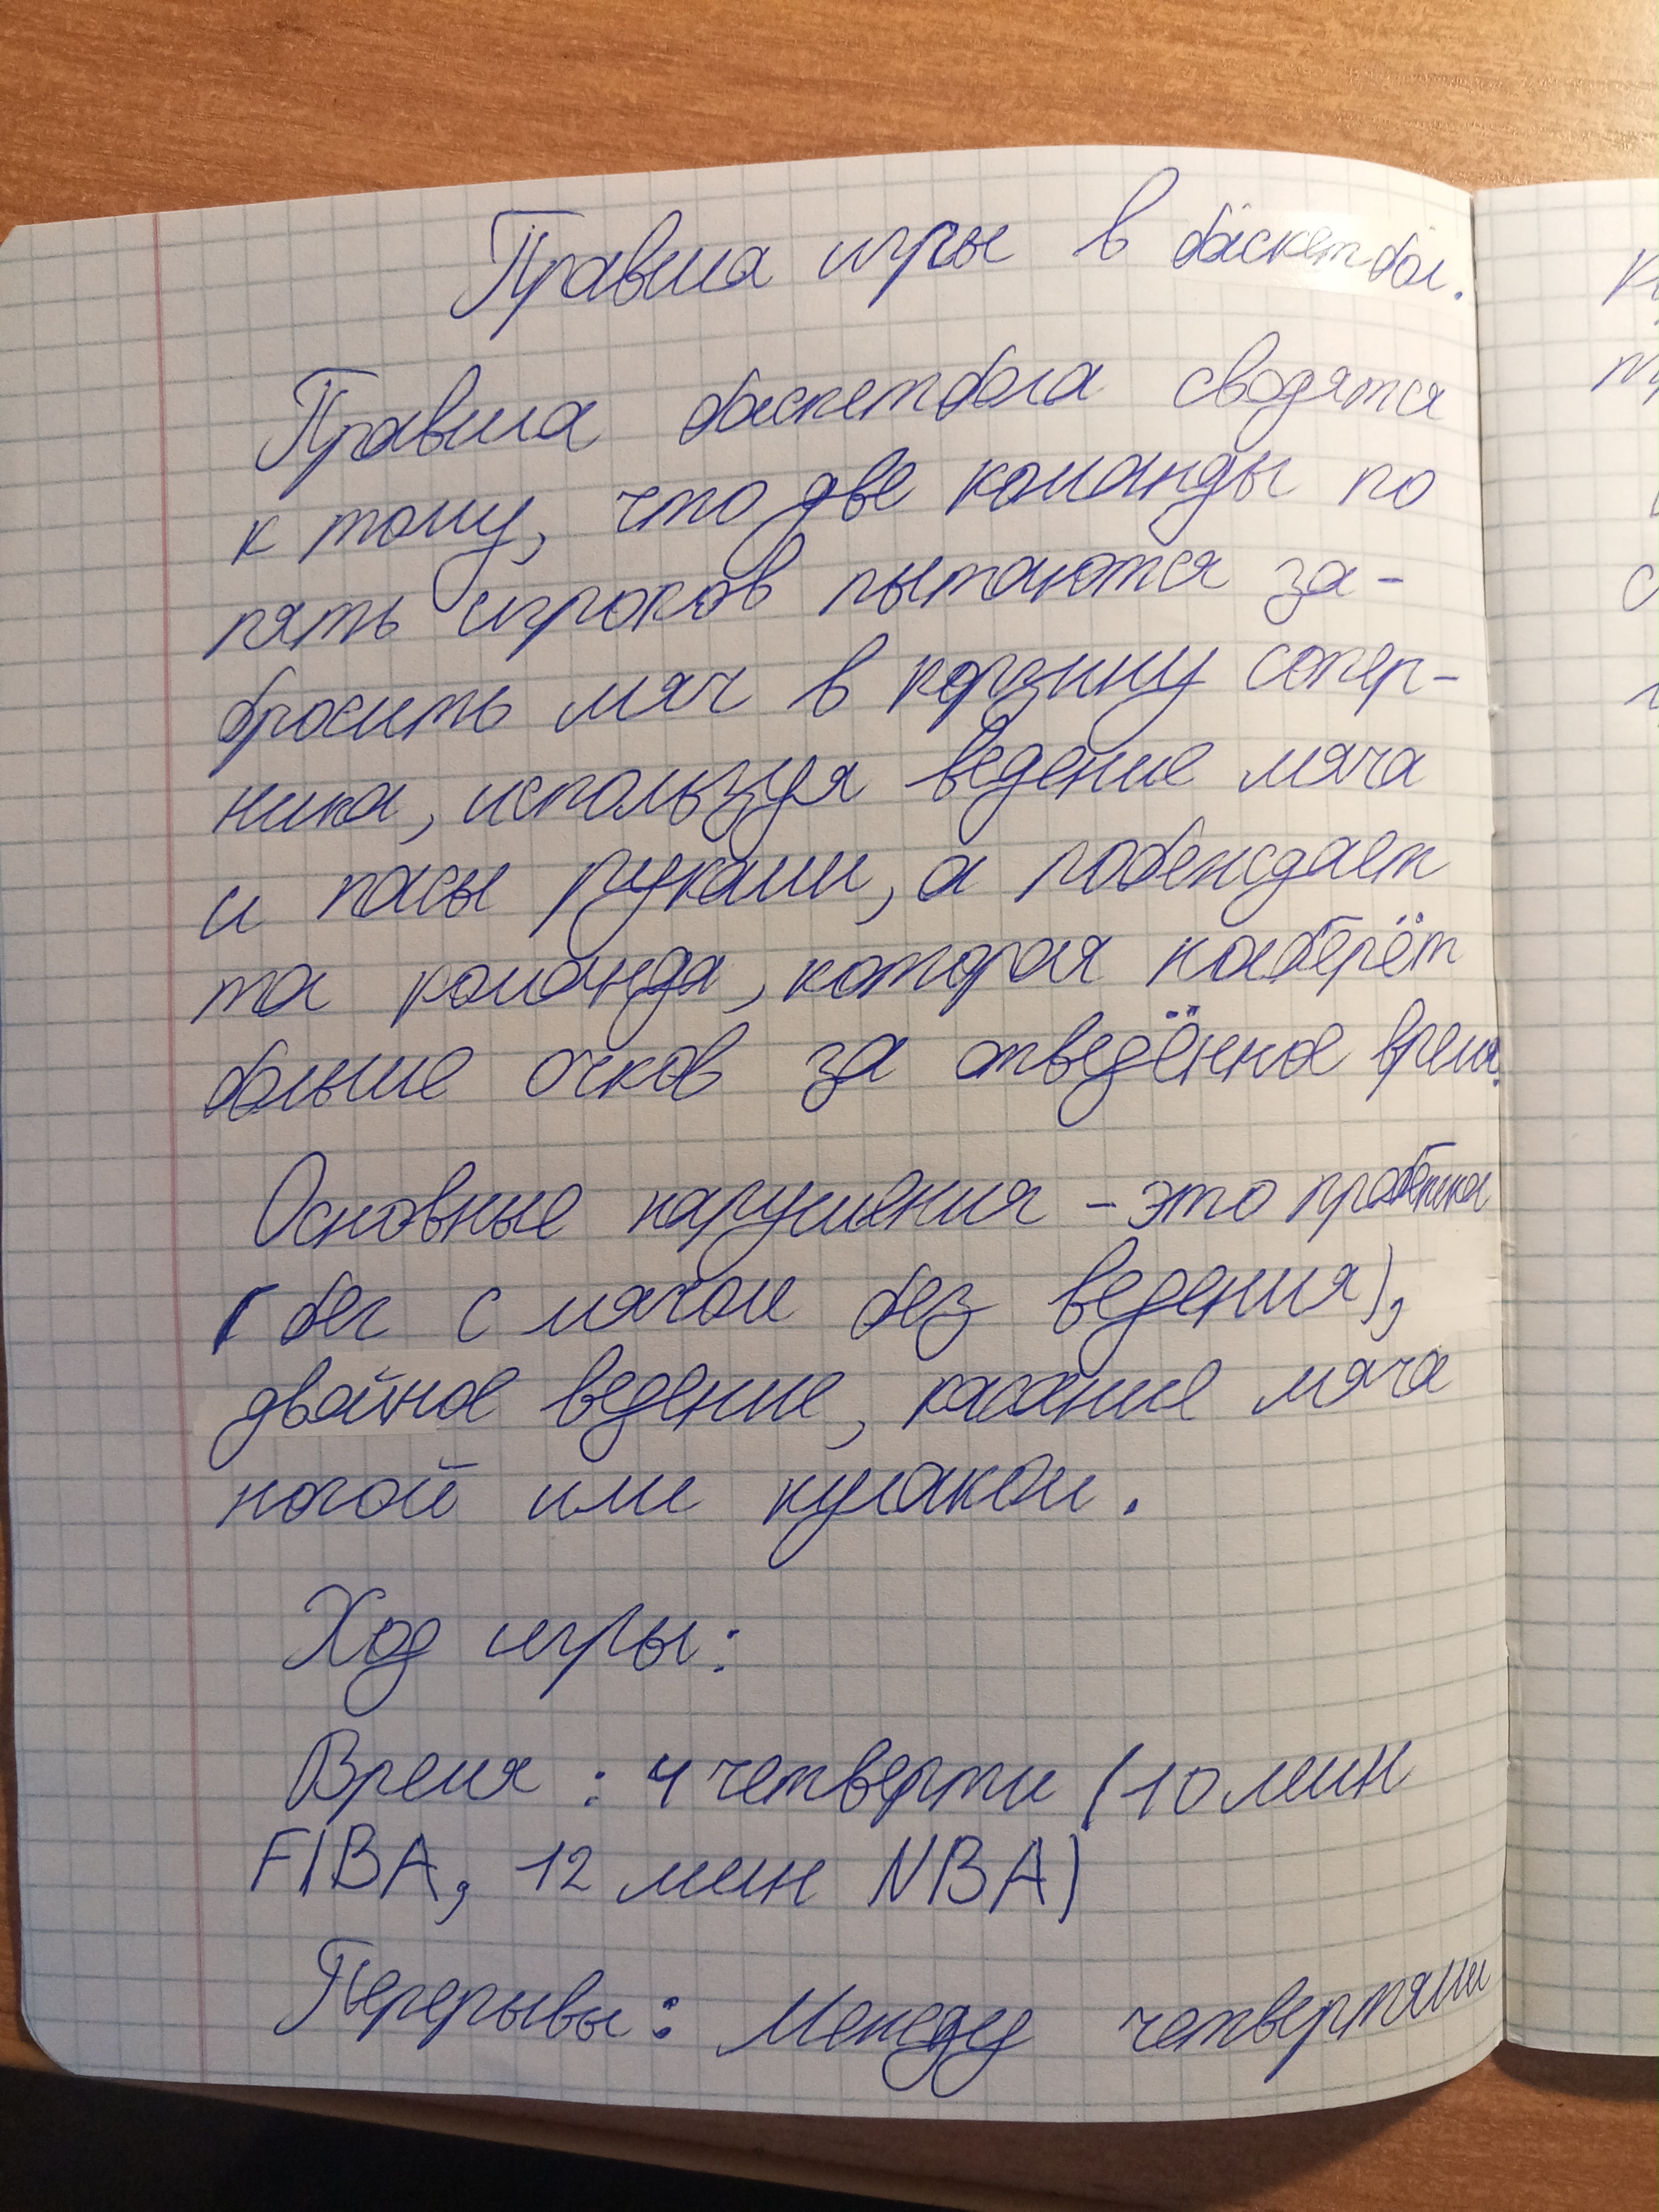 Правила игры в баскетбол.
Правила баскетбола сводятся
к тому, что две команды по
пять игроков пытаются за-
бросить мяч в корзину сопер-
ника, используя ведение мяча
и пасы руками, а побеждает
та команда, которая наберёт
больше очков за отведённое время.
Основные нарушения - это пробежка
(бег с мячом без ведения),
двойное ведение, касание мяча
ногой или кулаком.
Ход игры:
Время: 4 четверти (10 мин
FIBA, 12 мин NBA)
Перерывы: Между четвертями